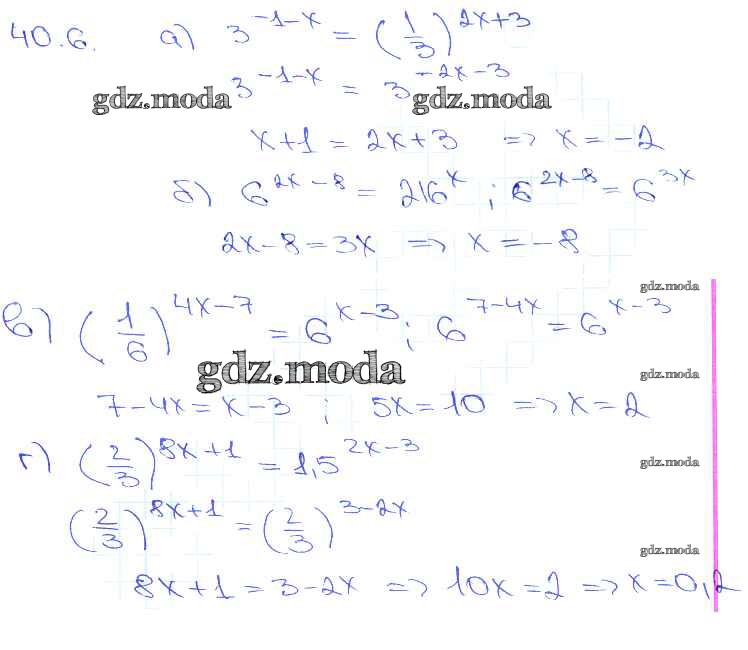 40.6. а) 3^{-1-x} = (1/3)^{2x+3}
3^{-1-x} = 3^{-2x-3}
gdz.moda gdz.moda
x+1 = 2x+3 => x = -2
б) 6^{2x-8} = 216^x ; 6^{2x-8} = 6^{3x}
2x-8 = 3x => x = -8
gdz.moda
в) (1/6)^{4x-7} = 6^{x-3} ; 6^{7-4x} = 6^{x-3}
gdz.moda
gdz.moda
7-4x = x-3 ; 5x = 10 => x = 2
г) (2/3)^{8x+1} = 1,5^{2x-3}
gdz.moda
(2/3)^{8x+1} = (2/3)^{3-2x}
gdz.moda
8x+1 = 3-2x => 10x = 2 => x = 0,2